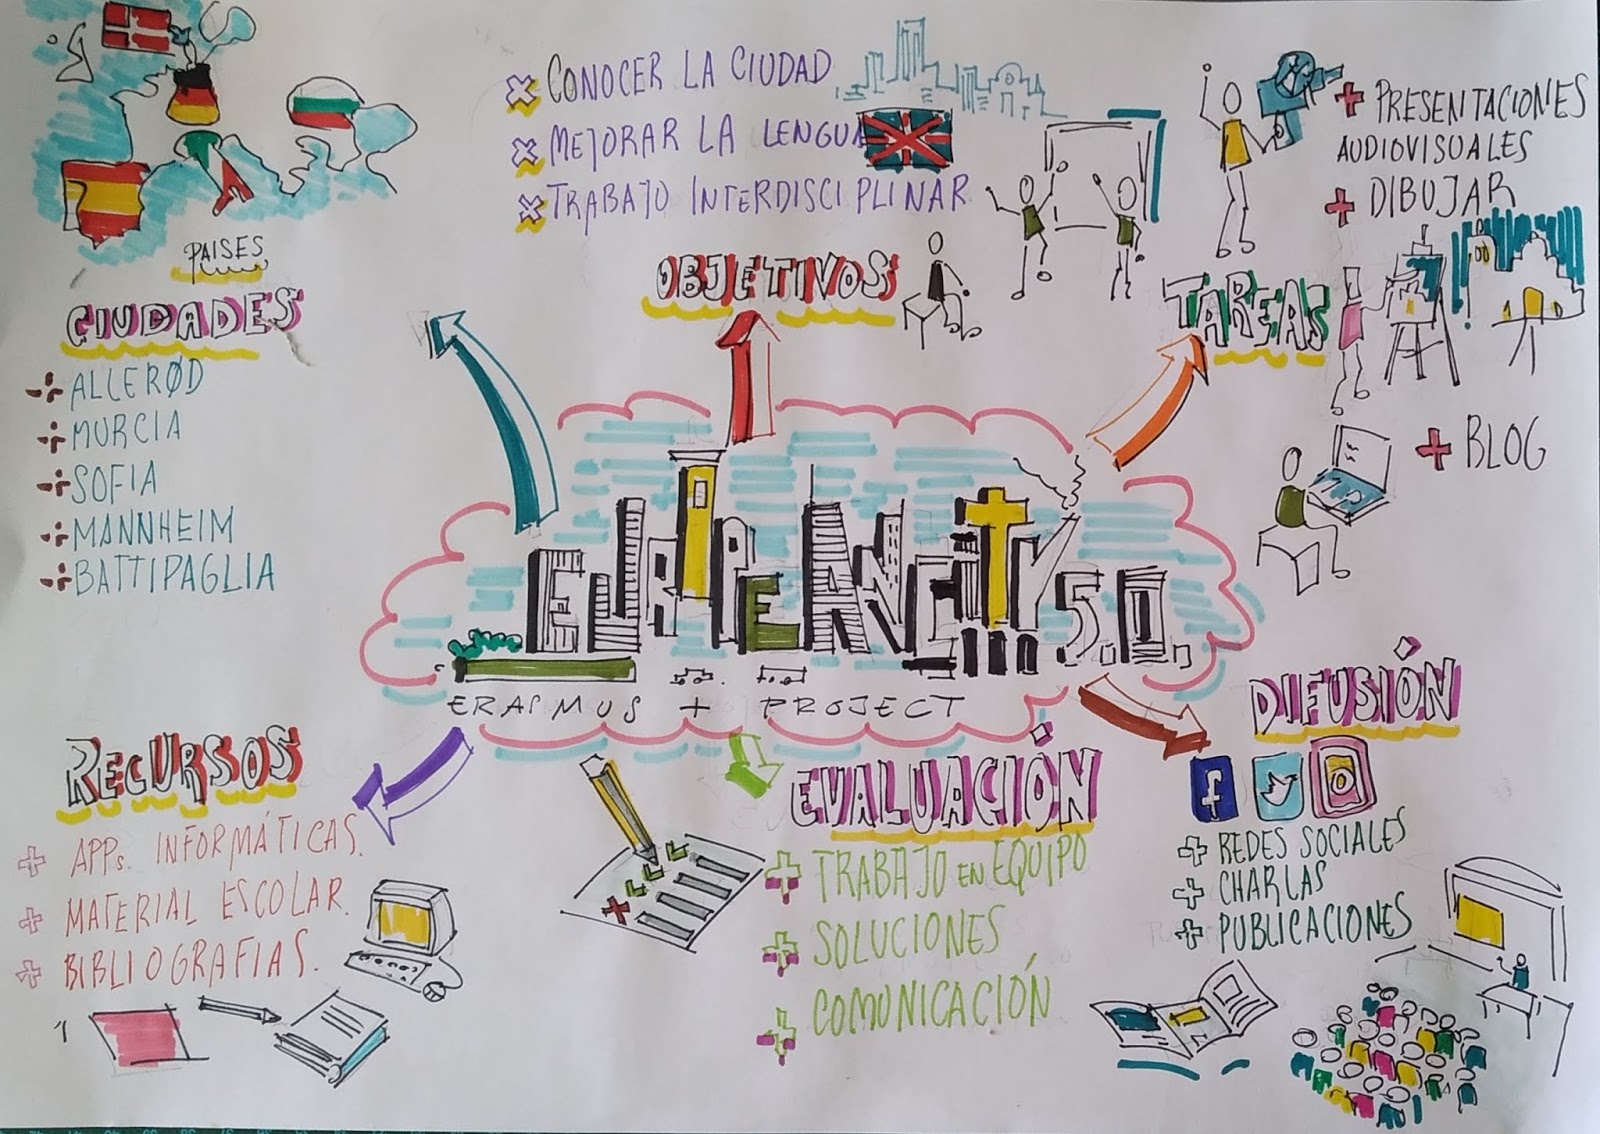 PAISES
CIUDADES
ALLERØD
MURCIA
SOFIA
MANNHEIM
BATTIPAGLIA
CONOCER LA CIUDAD
MEJORAR LA LENGUA
TRABAJO INTERDISCIPLINAR
OBJETIVOS
PRESENTACIONES
AUDIOVISUALES
DIBUJAR
TAREAS
BLOG
EUROPEAN CITY 5.0.
ERASMUS + PROJECT
RECURSOS
APPs. INFORMÁTICAS.
MATERIAL ESCOLAR.
BIBLIOGRAFIAS.
EVALUACIÓN
TRABAJO EN EQUIPO
SOLUCIONES
COMUNICACIÓN
DIFUSIÓN
f
REDES SOCIALES
CHARLAS
PUBLICACIONES